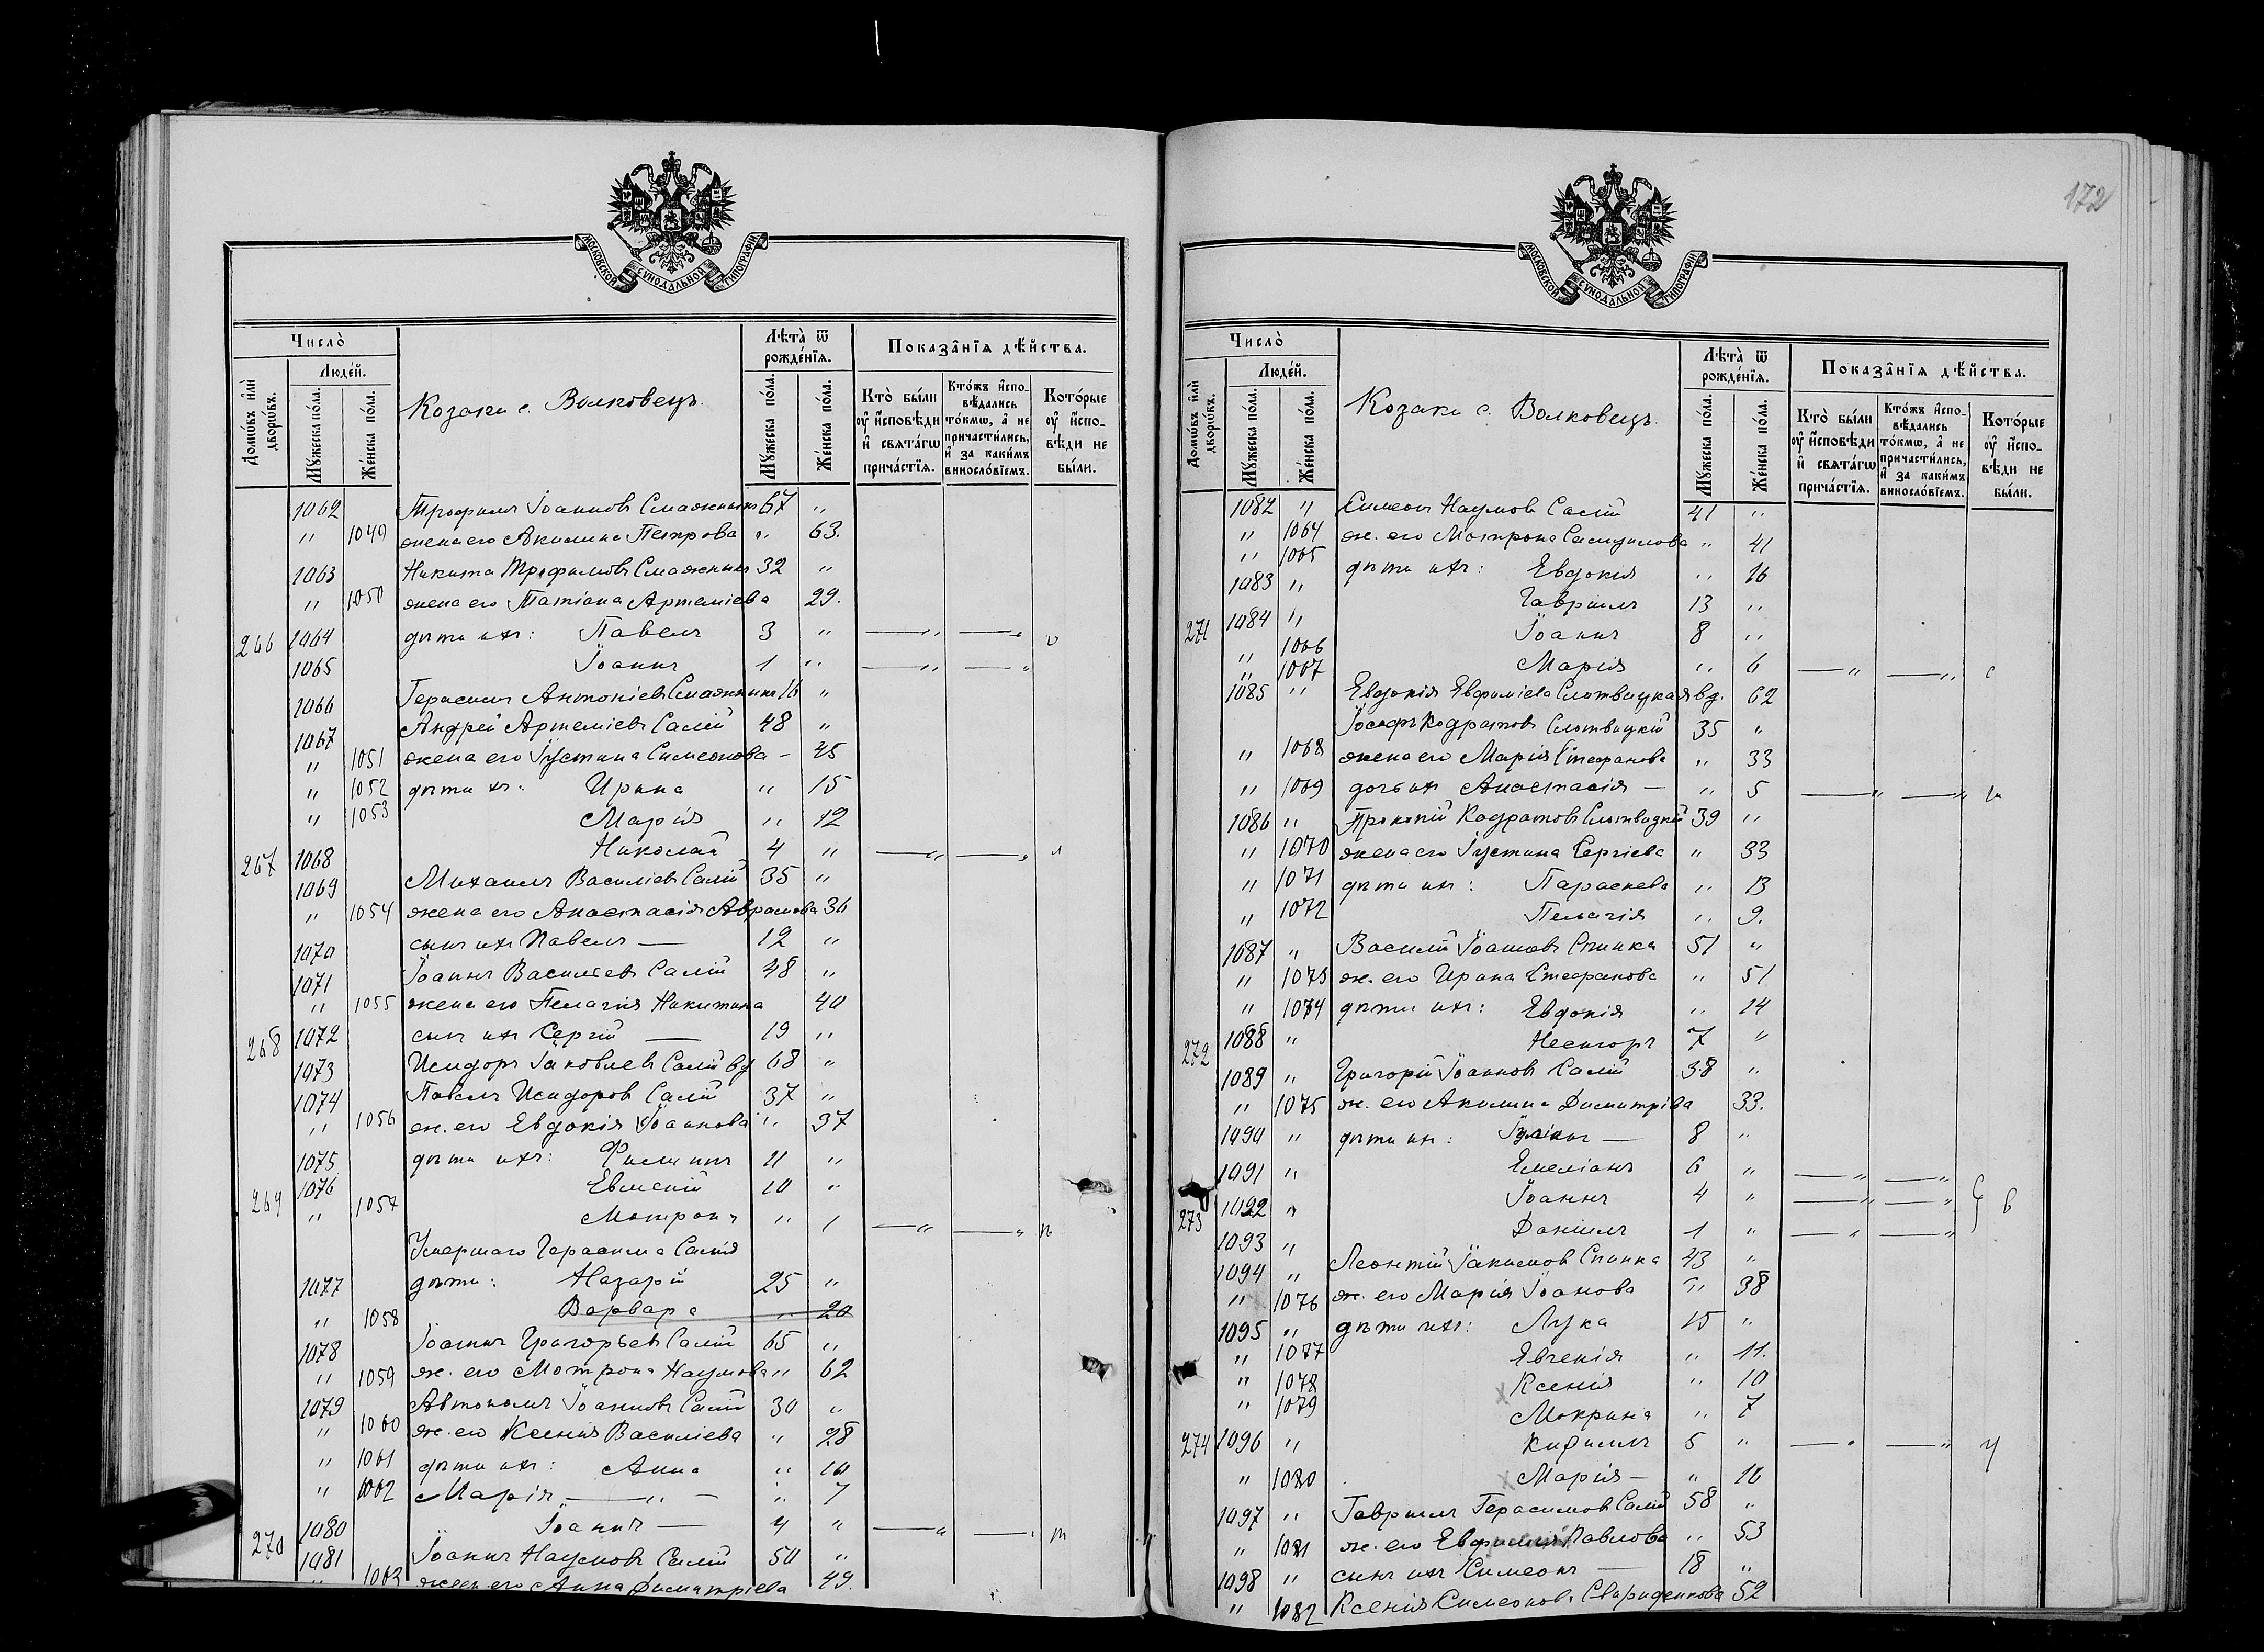 172
МОСКОВСКОЙ СУНОДАЛЬНОЙ ТИПОГРАФІИ
Число̀
Домѡ́въ и҆лѝ дворѡ́въ.
Люде́й.
Мꙋ́жеска по́ла.
Же́нска по́ла.
Козаки с. Волковецъ.
Лѣта̀ ѿ рожде́нїѧ.
Мꙋ́жеска по́ла.
Же́нска по́ла.
Показа̑нїѧ дѣ́йства.
Кто̀ бы́ли ᲂу҆ и҆спо́вѣди и҆ свѧта́гѡ прича́стїѧ.
Кто́жъ и҆спо-вѣ́дались то́кмѡ, а҆ не причасти́лись, и҆ за каки́мъ винослові́емъ.
Кото́рые ᲂу҆ и҆спо-вѣди не бы́ли.
1062 Трофимъ Іоанновъ Смажникъ 67 "
" 1049 жена его Акилина Петрова " 63.
1063 Никита Трофимовъ Смажникъ 32 "
" 1050 жена его Татіана Артеміева 29.
266 1064 дѣти ихъ: Павелъ 3 " — " — "
1065 Іоаннъ 1 " — " — "
1066 Герасимъ Антоніевъ Смажникъ 16 "
1067 Андрей Артеміевъ Салій 48 "
" 1051 жена его Іустина Симеонова - 45
" 1052 дѣти ихъ: Ирина " 15
" 1053 Марія " 12
267 1068 Николай 4 " — " — " л
1069 Михаилъ Василіевъ Салій 35 "
" 1054 жена его Анастасія Аврамова 36
1070 сынъ ихъ Павелъ — 12 "
1071 Іоаннъ Василіевъ Салій 48 "
" 1055 жена его Пелагія Никитина 40
268 1072 сынъ ихъ Сергій — 19 "
1073 Исидоръ Іаковлевъ Салій вд 68 "
1074 Павелъ Исидоровъ Салій 37 "
" 1056 ж. его Евдокія Іоаннова " 37
1075 дѣти ихъ: Филиппъ 11 "
269 1076 Евмений 10 "
" 1057 Мотрона " 1 — " — " п
Умершаго Герасима Салія
1077 дѣти: Назарій 25 "
" 1058 Варвара " 20
1078 Іоаннъ Григорьевъ Салій 65 "
" 1059 ж. его Мотрона Наумова " 62
1079 Автономъ Іоанновъ Салій 30 "
" 1060 ж. его Ксенія Василіева " 28
" 1061 дѣти ихъ: Анна " 10
" 1062 Марія — " — " 7
270 1080 Іоаннъ — 4 " — " — " т
1081 Іоаннъ Наумовъ Салій 50 "
" 1063 жена его Анна Димитріева 49.
МОСКОВСКОЙ СУНОДАЛЬНОЙ ТИПОГРАФІИ
Число̀
Домѡ́въ и҆лѝ дворѡ́въ.
Люде́й.
Мꙋ́жеска по́ла.
Же́нска по́ла.
Козаки с. Волковецъ.
Лѣта̀ ѿ рожде́нїѧ.
Мꙋ́жеска по́ла.
Же́нска по́ла.
Показа̑нїѧ дѣ́йства.
Кто̀ бы́ли ᲂу҆ и҆спо́вѣди и҆ свѧта́гѡ прича́стїѧ.
Кто́жъ и҆спо-вѣ́дались то́кмѡ, а҆ не причасти́лись, и҆ за каки́мъ винослові́емъ.
Кото́рые ᲂу҆ и҆спо-вѣди не бы́ли.
1082 " Симеонъ Наумовъ Салій 41 "
" 1064 ж. его Мотрона Самуилова " 41
" 1065 дѣти ихъ: Евдокія " 16
1083 " Гавриилъ 13 "
271 1084 " Іоаннъ 8 "
" 1066 Марія " 6 — " — " с
" 1067 Евдокія Евфиміева Слотвицкая вд. 62
1085 " Іосифъ Кодратовъ Слотвицкій 35 "
" 1068 жена его Марія Стефанова " 33
" 1069 дочь ихъ Анастасія — " 5 — " — "
1086 " Прокопій Кодратовъ Слотвицкій 39 "
" 1070 жена его Іустина Сергіева " 33
" 1071 дѣти ихъ: Параскева " 13
" 1072 Пелагія " 9.
1087 " Василій Іоанновъ Спинка 51 "
" 1073 ж. его Ирина Стефанова " 51
" 1074 дѣти ихъ: Евдокія " 14
272 1088 " Несторъ 7 "
1089 " Григорій Іоанновъ Салій 38 "
" 1075 ж. его Акилина Димитріева 33.
1090 " дѣти ихъ: Іуліанъ — 8 "
1091 " Емеліанъ 6 " — " — "
273 1092 " Іоаннъ 4 " — " — " в
1093 " Даніилъ 1 " — " — "
1094 " Леонтій Іакимовъ Спинка 43 "
" 1076 ж. его Марія Іоанова " 38
1095 " дѣти ихъ: Лука 15 "
" 1077 Евгенія " 11.
" 1078 Ксенія " 10
" 1079 Мокрина " 7
274 1096 " Кирилъ 5 " — " — "
" 1080 Марія — " 16
1097 " Гавриилъ Герасимовъ Салій 58 "
" 1081 ж. его Евфимія Павлова " 53
1098 " сынъ ихъ Симеонъ — 18 "
" 1082 Ксенія Симеонова Свириденкова 52